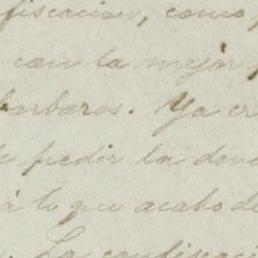 fiscacion, como
con la mejor
barbaros. Ya cr
de pedir la dev
á lo que acabo de
. La confisaci